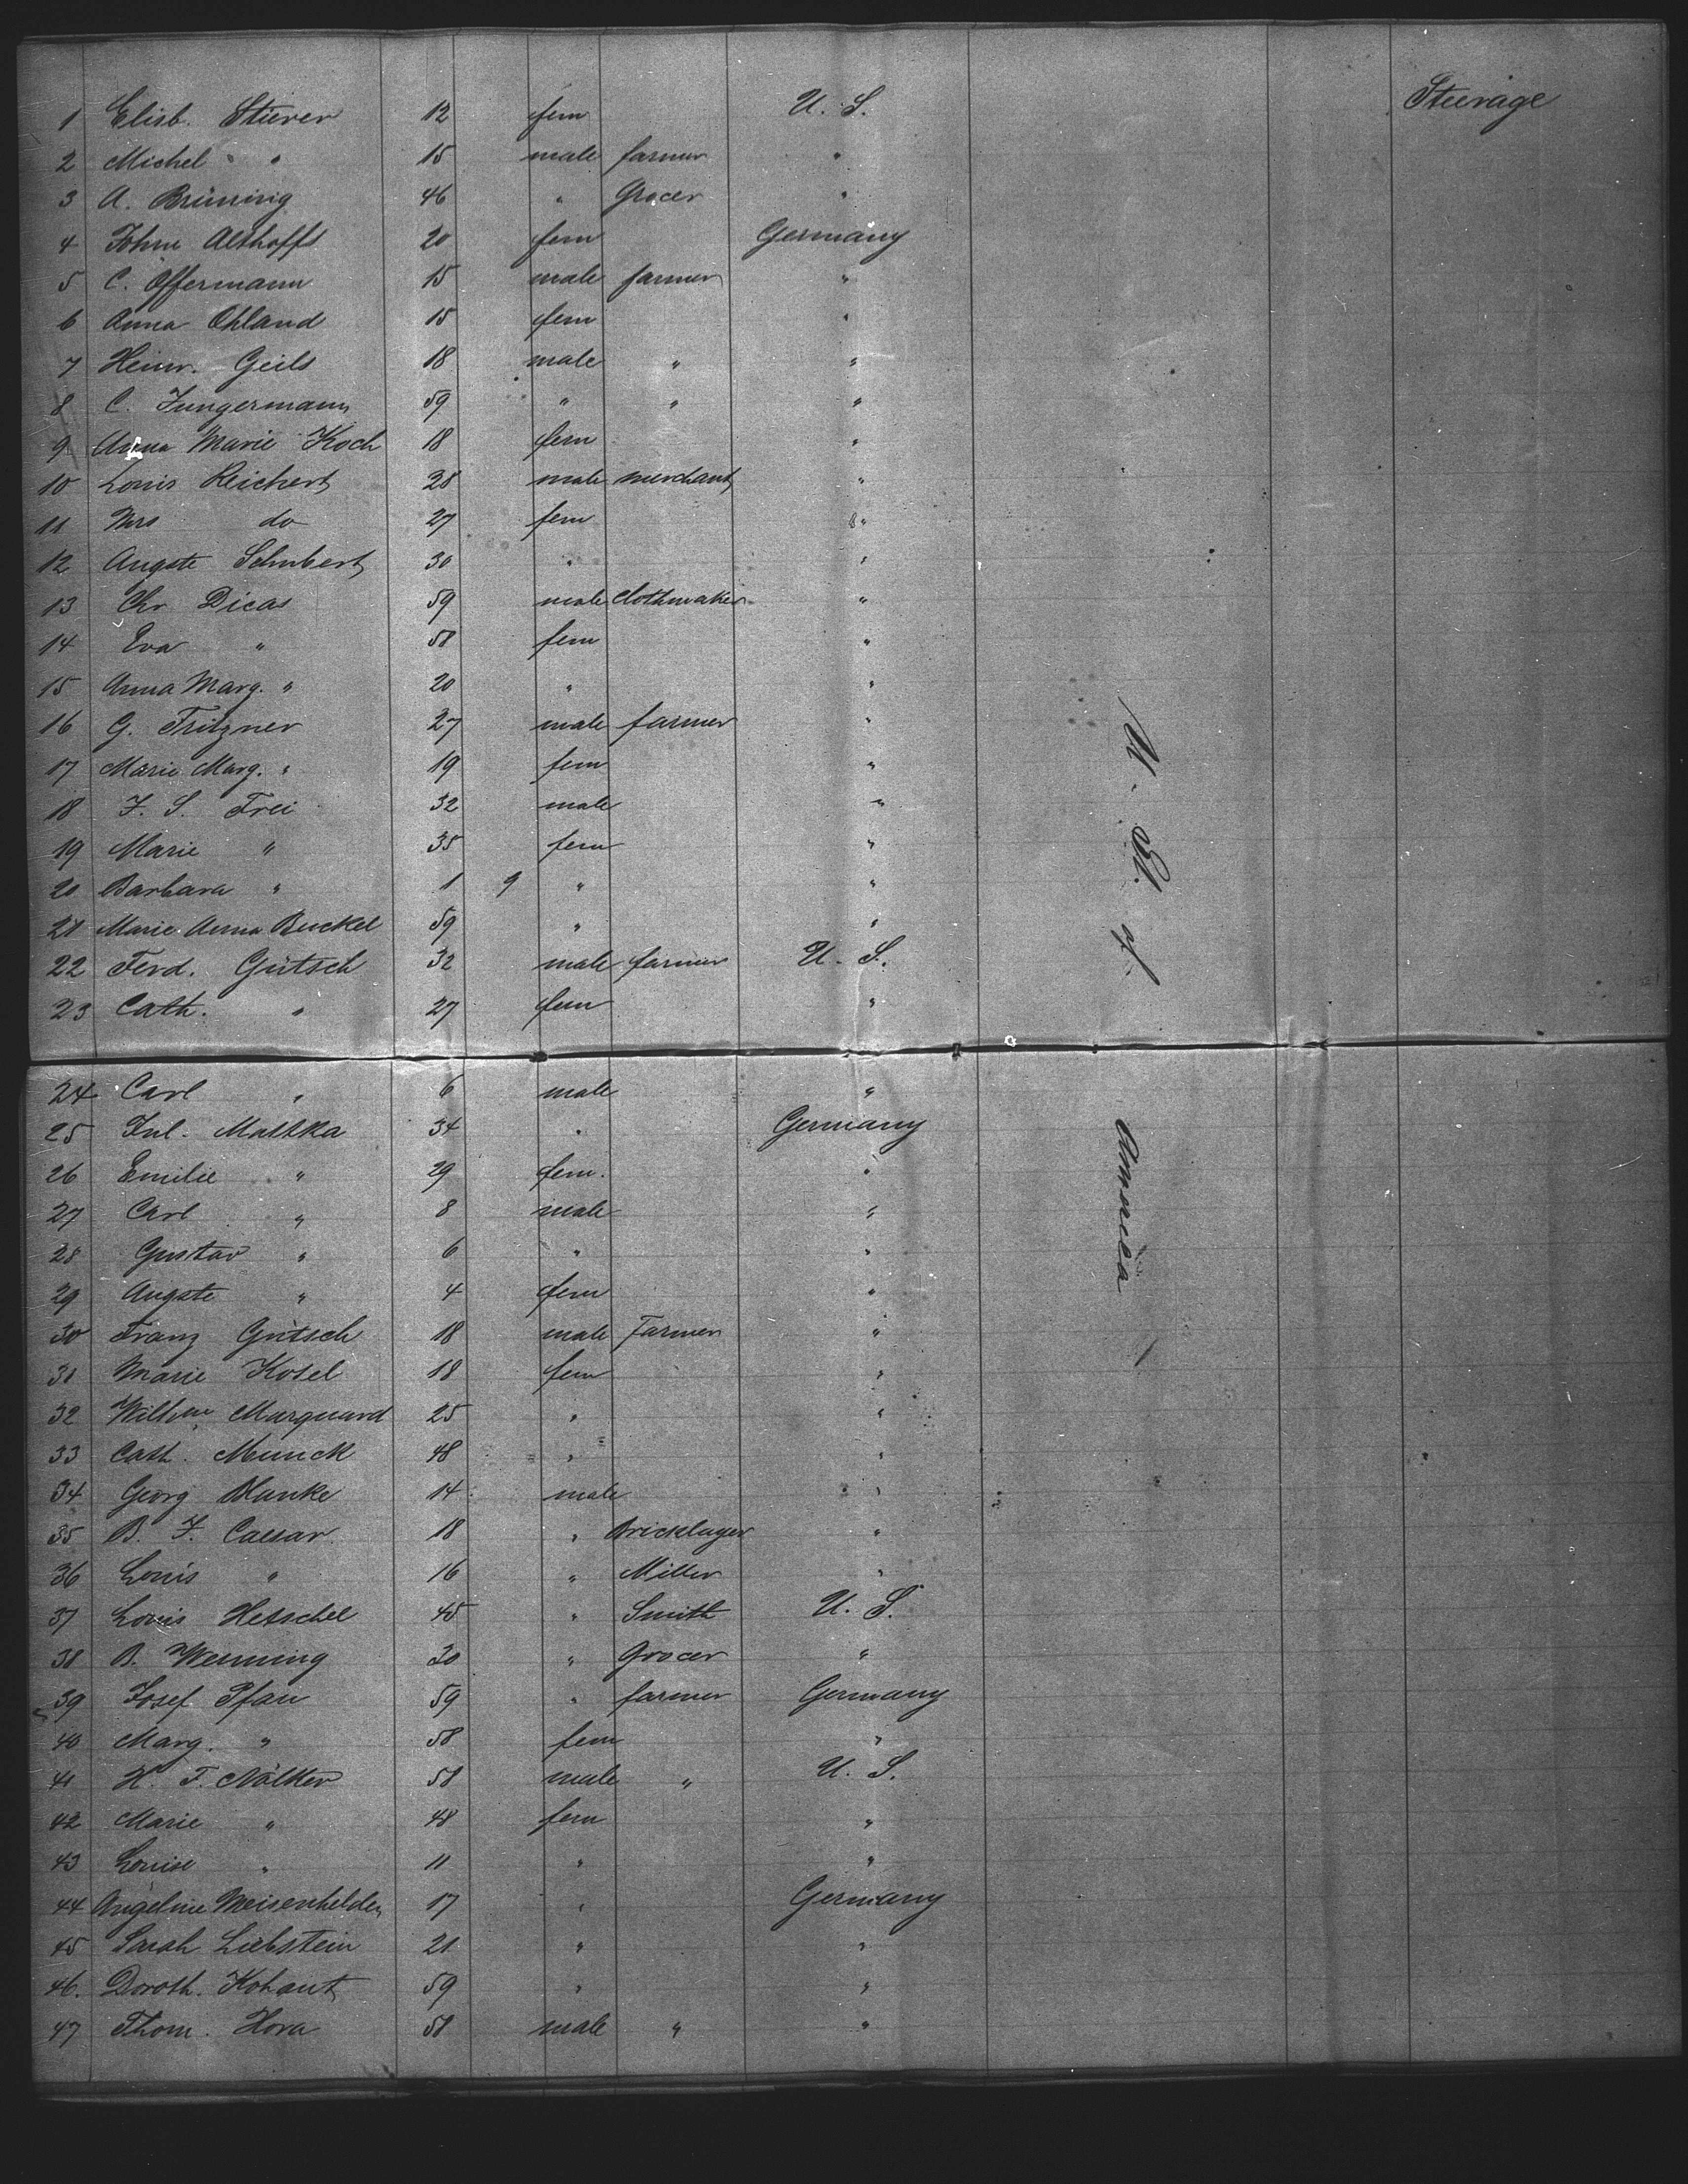 1 Elisb. Stierer 12 fem U. S. Steerage
2 Michel " 15 male farmer "
3 A. Brüning 46 " Grocer "
4 Johne Althoffs 20 fem Germany
5 C. Offermann 15 male farmer "
6 Anna Ohland 15 fem "
7 Heinr. Geils 18 male " "
8 C. Jungermann 59 " " "
9 Anna Marie Koch 18 fem "
10 Louis Reichert 28 male merchant "
11 Mrs do 27 fem "
12 Augste Schubert 30 " "
13 Chr Dicas 59 male Clothmaker "
14 Eva " 58 fem "
15 Anna Marg. " 20 " "
16 G. Fritzner 27 male farmer "
17 Marie Marg. " 19 fem "
18 J. S. Frei 32 male "
19 Marie " 35 fem "
20 Barbara " 1 9 " "
21 Marie Anna Buckel 59 " "
22 Ferd. Gütsch 32 male farmer U. S.
23 Cath. " 27 fem "
24 Carl " 6 male "
25 Jul. Matzka 34 " Germany
26 Emilie " 29 fem. "
27 Carl " 8 male "
28 Gustav " 6 " "
29 Augste " 4 fem "
30 Franz Gütsch 18 male Farmer "
31 Marie Kosel 18 fem "
32 Wilhne Marquard 25 " "
33 Cath. Munck 48 " "
34 Georg Blanke 14 male "
35 B. F. Caesar 18 " Bricklayer "
36 Louis " 16 " Miller "
37 Louis Hetschel 45 " Smith U. S.
38 B. Wenning 30 " Grocer "
39 Josef Pfau 59 " farmer Germany
40 Marg. " 58 fem "
41 H. F. Nölker 58 male " U. S.
42 Marie " 48 fem "
43 Louise " 11 " "
44 Angeline Meisenhelder 17 " Germany
45 Sarah Liebstein 21 " "
46. Doroth. Kohaut 59 " "
47 Thom. Hora 58 male " "
U. St. of America